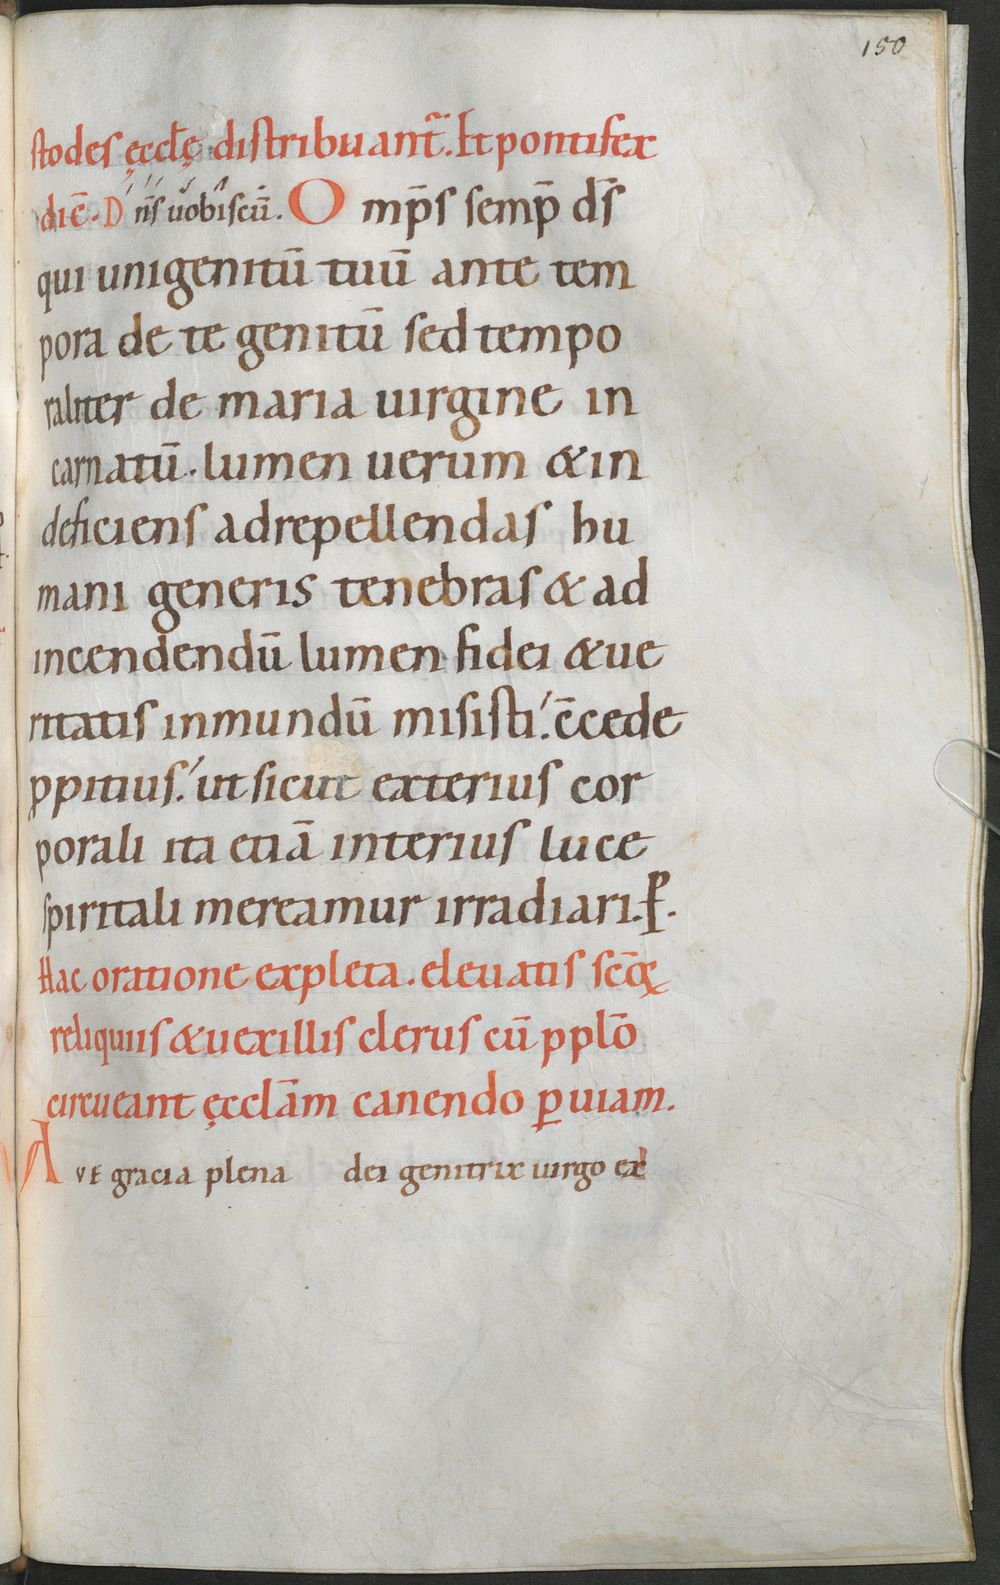 150
stodes ęccłę distribuant̃. Et pontifex
dic̄. Dn̄s uobiscū. O mp̄s semp̄ ds̄
qui unigenitū tuū ante tem
pora de te genitū sed tempo
raliter de maria uirgine in
carnatū. lumen uerum & in
deficiens ad repellendas hu
mani generis tenebras & ad
incendendū lumen fidei & ue
ritatis in mundū misisti. c̄cede
ꝓpitius. ut sicut exterius cor
porali ita etiā interius luce
spiritali mereamur irradiari. P̄.
Hac oratione expleta. eleuatis sc̄oꝝ
reliquiis & uexillis clerus cū pplō
circueant ęcclām canendo ꝑ uiam.
AVE gracia plena dei genitrix uirgo ex